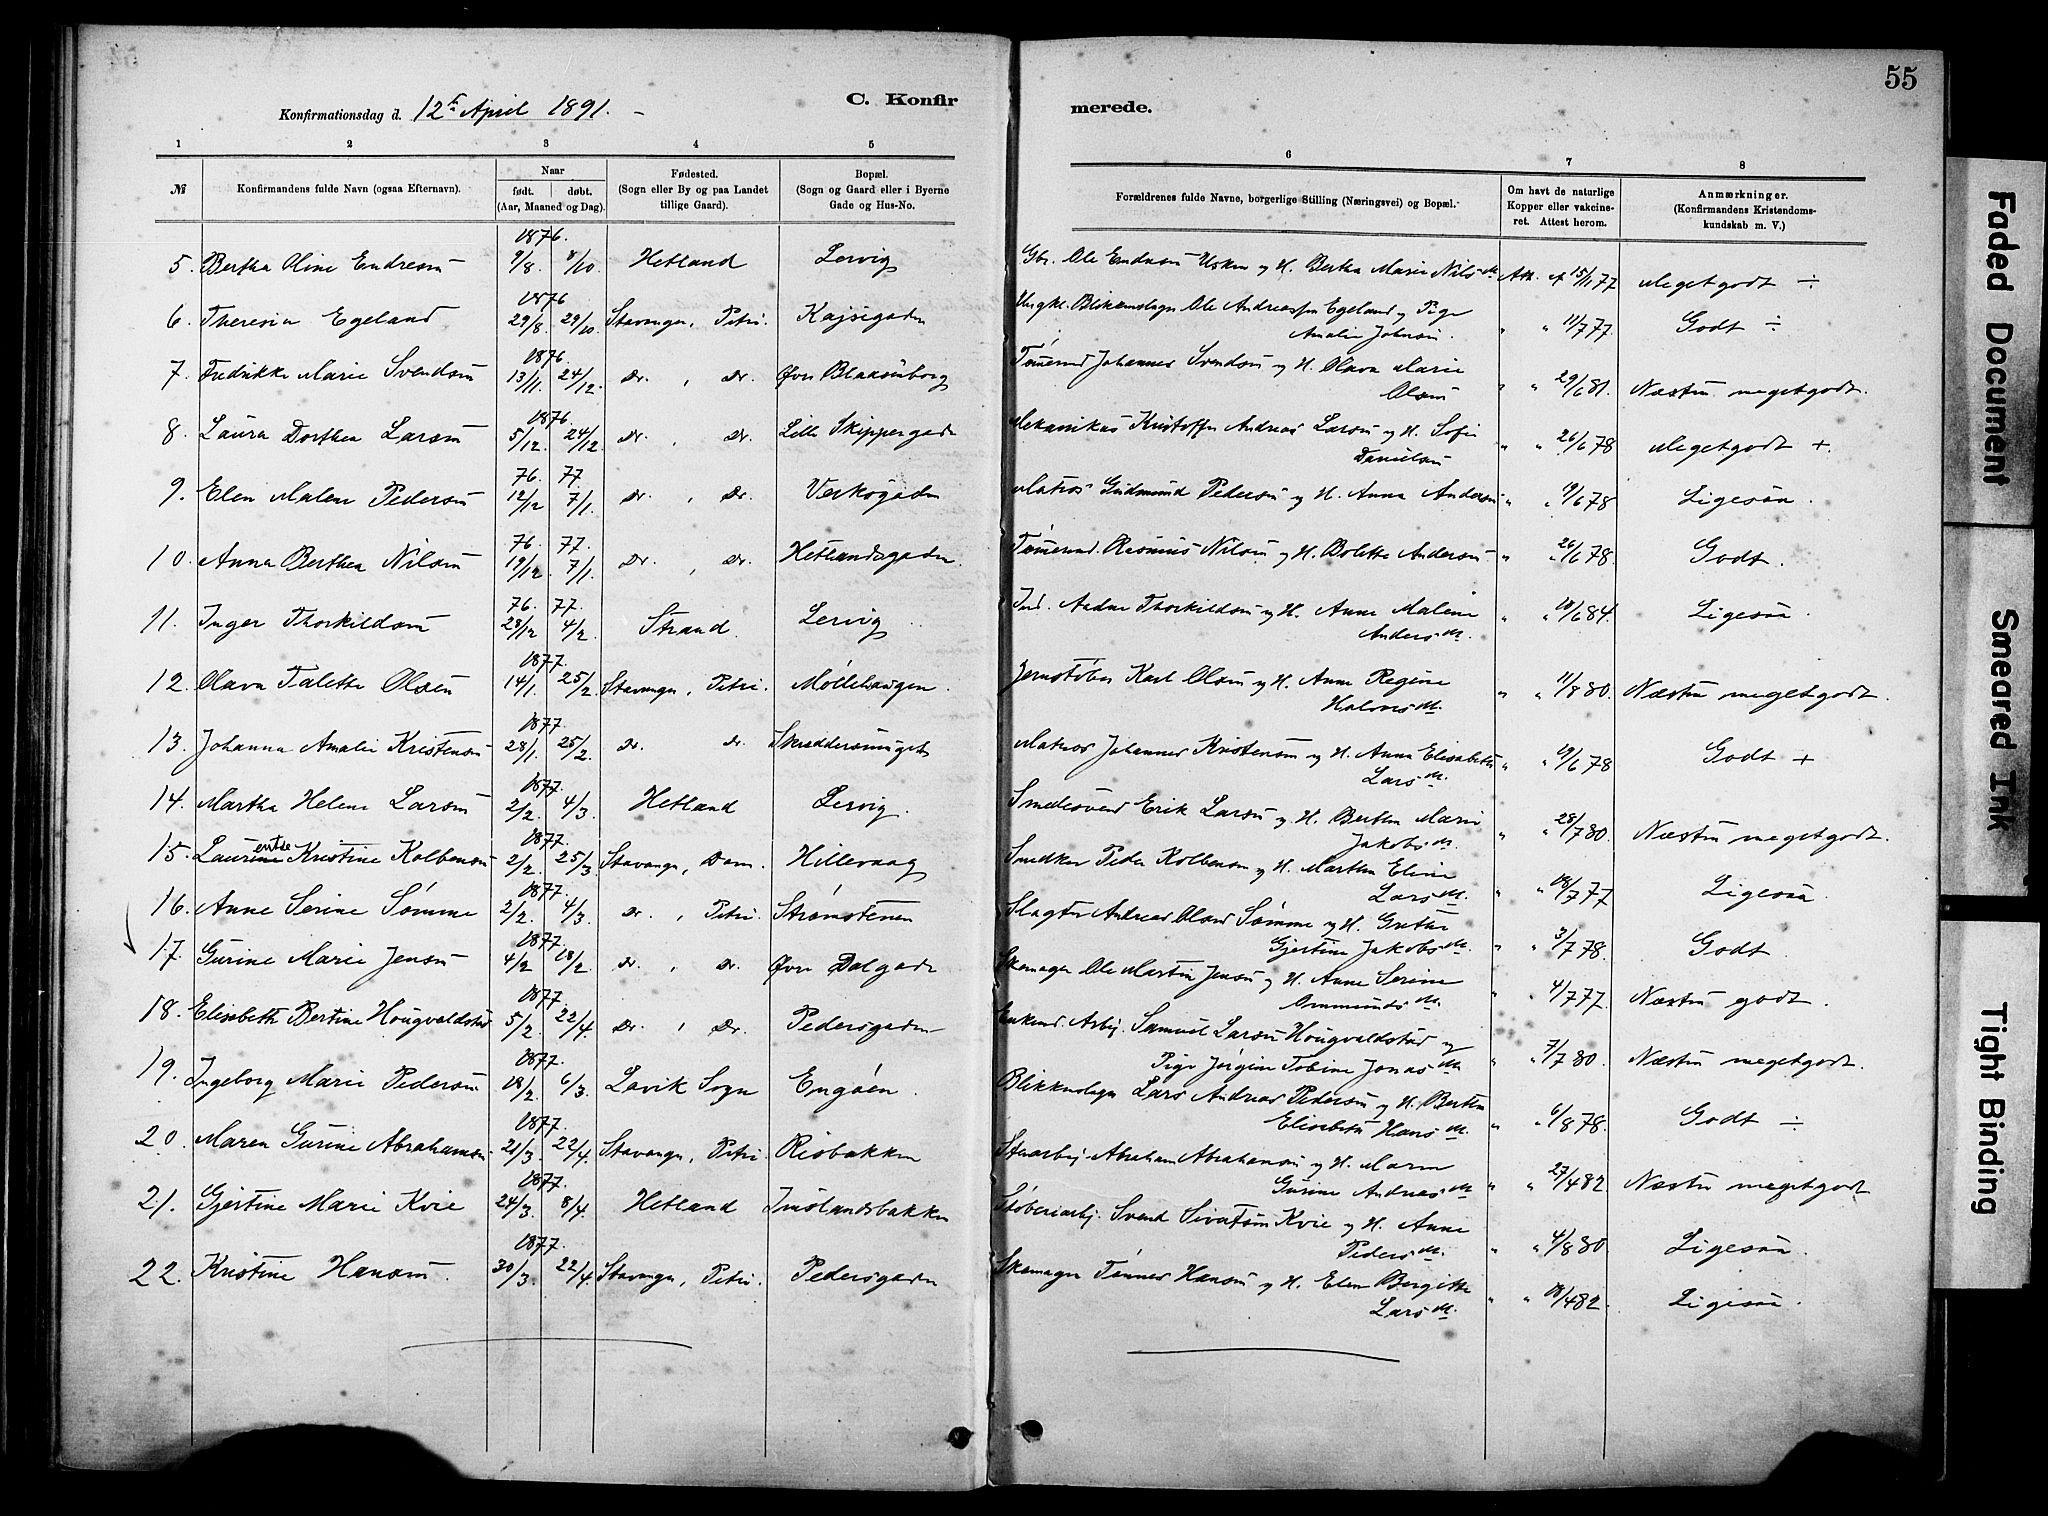 55
C. Konfir
merede.
Konfirmationsdag d. 12te April 1891. –
1 2 3 4 5 6 7 8
№ Konfirmandens fulde Navn (ogsaa Efternavn). Naar født. døbt. (Aar, Maaned og Dag). Fødested. (Sogn eller By og paa Landet tillige Gaard). Bopæl. (Sogn og Gaard eller i Byerne Gade og Hus-No. Forældrenes fulde Navne, borgerlige Stilling (Næringsvei) og Bopæl. Om havt de naturlige Kopper eller vakcineret. Attest herom. Anmærkninger. (Konfirmandens Kristendomskundskab m. V.)
1876.
5. Bertha Oline Endresen 9/8. 8/10. Hetland Lervig Gbr. Ole Endresen Usken og H. Bertha Marie Nils D. Att. af 15/1 77 Megetgodt ÷
1876
6. Theresia Egeland 29/8. 29/10. Stavanger, Petri. Kajsigaden Ungkl. Blikkenslager Ole Andreassen Egeland og Pige
Amalie Johnsen. " " 11/7 77. Godt ÷
1876.
7. Fredrikke Marie Svendsen 13/11. 24/12. Do. , Do. Øvre Blaasenborg Tømmermd Johannes Svendsen og H. Olava Marie
Olsen " " 29/6 81. Næsten megetgodt.
1876.
8. Laura Dorthea Larsen 5/12. 24/12. Do. , Do. Lille Skippergade Mekanikus Kristoffer Andreas Larsen og H. Sofie
Danielsen " " 26/6 78 Megetgodt +.
76. 77.
9. Elen Malene Pedersen 12/12 7/1. Do. , Do. Verksgaden Matros Gudmund Pedersen og H. Anna Andersen " " 19/6 78 Ligesaa.
76. 77.
10. Anna Berthea Nilsen 19/12. 7/1. Do. , Do. Hetlandsgaden. Tømmermd. Rasmus Nilsen og H. Bolette Andersen " " 26/6 78. Godt.
76. 77.
11. Inger Thorkildsen 28/12 4/2. Strand. Lervig Ind. Aadne Thorkildsen og H. Anne Malene
Anders D. " " 18/6 84. Ligesaa
1877.
12. Olava Talette Olsen 14/1. 25/2. Stavanger, Petri. Møllehaugen. Jernstøber Karl Olsen og H. Anne Regine
Halvors D. " " 11/8 80. Næsten megetgodt.
1877.
13. Johanna Amalie Kristensen 28/1. 25/2. Do. Do. Skreddersmuget Matros Johannes Kristensen og H. Anna Elisabeth
Lars D. " " 19/6 78 Godt +
1877.
14. Martha Helene Larsen 2/2. 4/3. Hetland Lervig. Smedesvend Erik Larsen og H. Berthe Marie
Jakobs D. " " 28/7 80. Næsten megetgodt.
entse
1877.
15. Laurine Kristine Kolbensen 2/2. 25/3 Stavanger, Dom. Hillevaag Peder Kolbensen og H. Marthe Eline
Lars D. " " 18/7 77 Ligesaa.
1877.
16. Anne Serine Sømme 2/2. 4/3. Do. , Petri. Strømstenen Slagter Andreas Olsen Sømme og H. Grethe
Gjertine Jakobs D. " " 3/7 78. Godt
1877.
17. Gurine Marie Jensen 4/2 18/2. Do. , Do. Øvre Dalgade Skomager Ole Martin Jensen og H. Anne Serine
Ommunds D. " " 4/7 77. Næsten godt.
1877.
18. Elisabeth Bertine Hougvaldstad 5/2. 22/4. Do. , Do. Pedersgaden Enkemd. Arbj. Samuel Larsen Hougvaldstad og
Pige Jørgine Tobine Jonas D. " " 7/7 80. Næsten megetgodt.
1877.
19. Ingeborg Marie Pedersen 18/2. 6/3. Lavik Sogn Engøen. Blikkenslager Lars Andreas Pedersen og H. Berthe
Elisabeth Hans D. " " 6/8 78. Godt ÷
1877.
20. Maren Gurine Abrahamsen 21/3. 22/4. Stavanger, Petri. Risbakken Stenarbej. Abraham Abrahamsen og H. Maren
Gurine Andreas D. " " 27/4 82. Næsten megetgodt
1877.
21. Gjertine Marie Kvie 24/3. 8/4. Hetland Imslandsbakken Støberiarbj. Svend Kvie og H. Anne
Peders D. " " 4/8 80 Ligesaa.
1877.
22. Kristine Hansen. 30/3. 22/4. Stavanger, Petri. Pedersgaden Skomager Tønnes Hansen og H. Elen Bergitte
Lars D. " " 18/4 82. Ligesaa.
Faded Document
Smeared Ink
Tight Binding